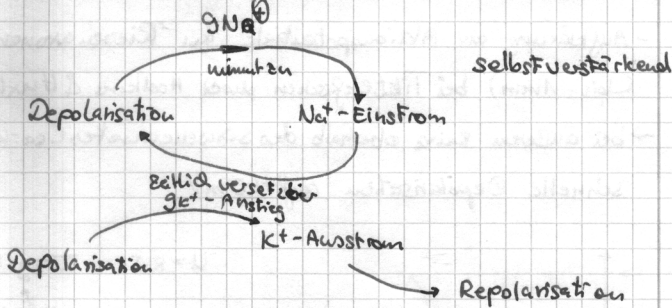 gNa⁺
nimmt zu
selbstverstärkend
Depolarisation
Na⁺-Einstrom
zeitlich versetzter
gK⁺-Anstieg
K⁺-Ausstrom
Depolarisation
Repolarisation